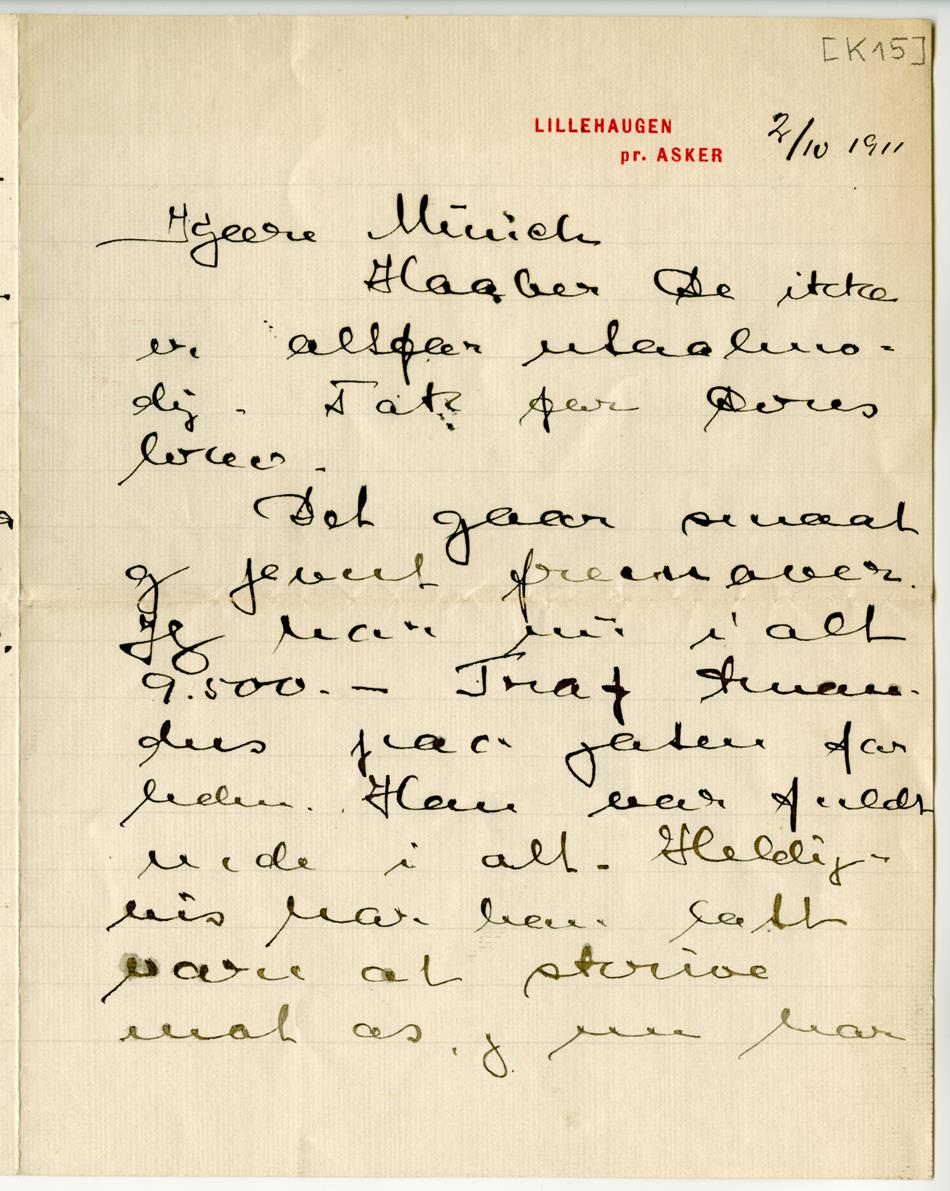 [K15]
LILLEHAUGEN
pr. ASKER
2/10 1911
Kjære Münich
Haaber De ikke
er altfor utaalmo-
dig. Tak for Deres
brev.
Det gaar smaat
og jevnt fremover.
Jeg har nu i alt
9.500.— Traf
paa gaten for
leden. Han var fuldt
inde i alt. Heldig-
vis har han latt
være at skrive
mot os, og nu har